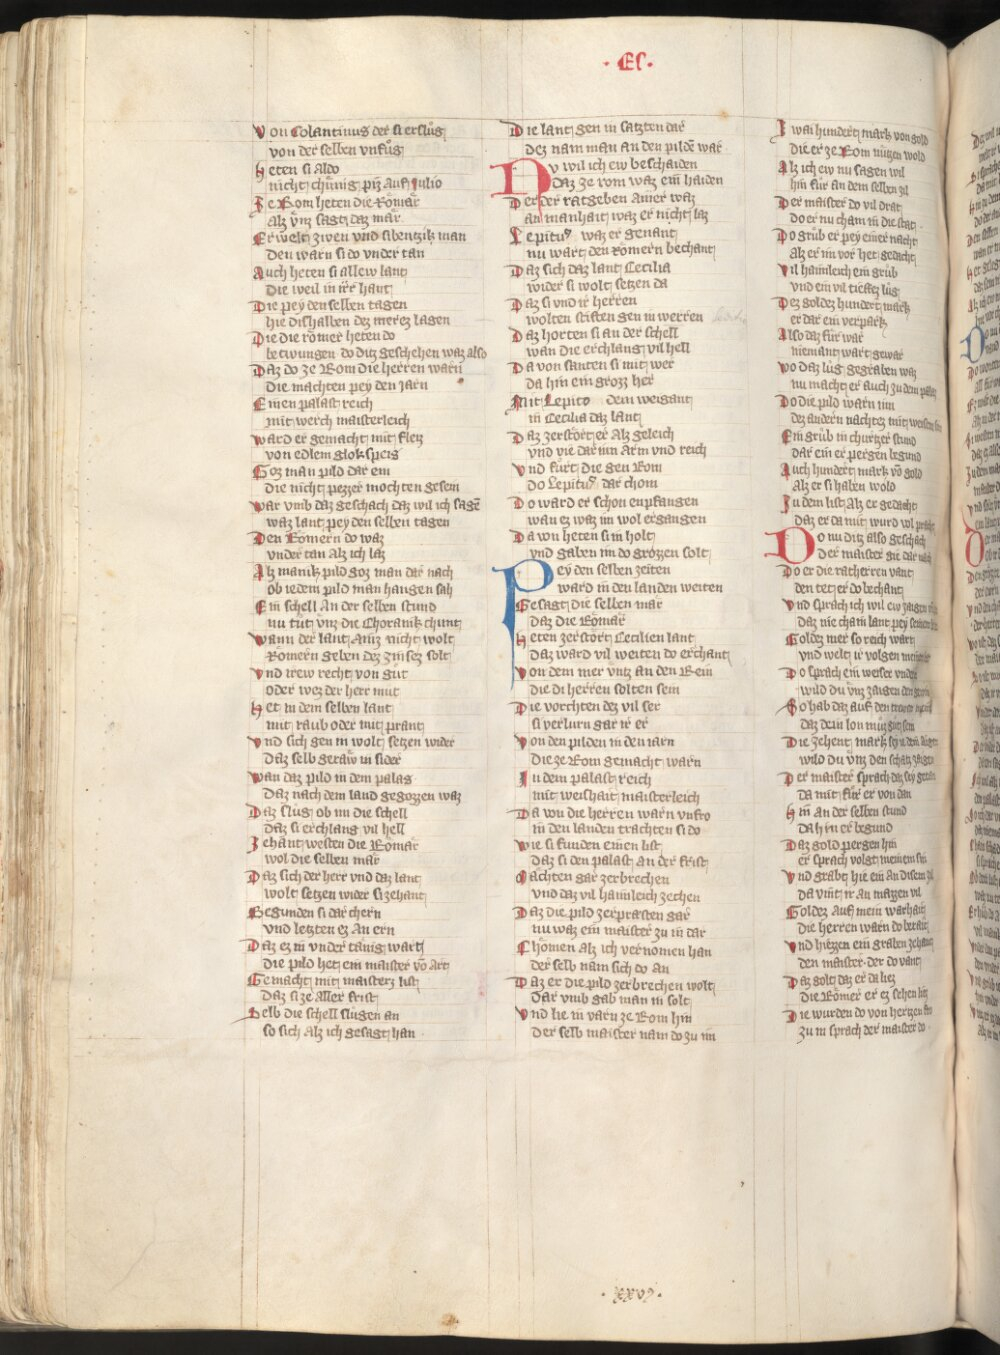 · EC ·
Von Colantinus der si ersluͦg
von der selben vnfuͦg
Heten si Aldo
nicht chuͤnig piz Auf Julio
Ze Rom heten die Roͤmaͤr
Alz vnz sagt daz maͤr
Erwelt zwen vnd sibentzik man
den warn si do vnder tan
Auch heten si allew lant
die weil in irr hant
Die pey den selben tagen
hie dishalben dez merez lagen
Die die roͤmer heten do
betwungen do ditz geschehen waz also
Daz do ze Rom die herren warn
die machten pey den iarn
Einen palast reich
mit werch maisterleich
Ward er gemacht mit fleiz
von edlem glokspeis
Goz man pild dar ein
die nicht pezzer mochten gesein
War vmb daz geschach daz wil ich sagē
waz lant pey den selben tagen
Den Roͤmern do waz
vnder tan Alz ich laz
Alz manik pild goz man dar nach
ob iedem pild man hangen sah
Ein schell An der selben stund
nu tut vnz die Choranik chunt
Wann der lant Ainz nicht wolt
Romern geben dez zinsez solt
Vnd trew recht von gut
oder wez der herr mut
Het in dem selben lant
mit raub oder mit prant
Vnd sich gen in wolt setzen wider
daz selb geraw in sider
Wan daz pild in dem palas
daz nach dem land gegozzen waz
Daz sluͦg ob im die schell
daz si erchlang vil hell
Zehant westen die Roͤmaͤr
wol die selben maͤr
Daz sich der herr vnd daz lant
wolt setzen wider si zehant
Begunden si dar chern
vnd letzten ez An ern
Daz ez in vnder tānig wart
die pild het ein maister vō art
Gemacht mit maisterz list
daz si ze aller frist
Selb die schell sluͦgen an
so sich Alz ich gesagt han
Die lant gen in satzten dar
dez nam man an den pildē war
Nv wil ich ew beschaiden
daz ze rom waz ein haiden
Der der ratgeben Ainer waz
an manhait waz er nicht laz
Lepitus waz er genant
nu wart den Romern bechant
Daz sich daz lant Cecilia
wider si wolt setzen da
Daz si vnd ir herren
wolten stiften gen in werren
Daz horten si an der schell
wan die erchlang vil hell
Da von santen si mit wer
da hin ein grozz her
Mit Lepito dem weigant
in Cecilia daz lant
Daz zerstort er Alz geleich
vnd vie dar inn Arm vnd reich
Vnd fuͤrt die gen Rom
do Lepitus dar chom
Do ward er schon enpfangen
wan ez waz im wol ergangen
Da von heten si in holt
vnd gaben im do grozzen solt
Pey den selben zeiten
ward in den landen weiten
Gesagt die selben maͤr
daz die Roͤmaͤr
Heten zerstoͤrt Cecilien lant
daz ward vil weiten do erchant
Von dem mer vntz an den Rein
die di herren solten sein
Die vorchten dez vil ser
si verlurn gar ir er
Von den pilden in den iarn
die ze Rom gemacht warn
In dem palast reich
mit weishait maisterleich
Da wu die herren warn vnfro
in den landen trachten si do
Wie si funden einen list
daz si den palast An der frist
Machten gar zerbrechen
vnd daz vil haimleich zechen
Daz die pild zerprasten gar
nu waz ein maister zu in dar
Chomen alz ich vernomen han
der selb nam sich do an
Daz er die pild zerbrechen wolt
dar vmb gab man im solt
Vnd lie in varn ze Rom hin
der selb maister nam do zu im
Zwai hundert mark von gold
die er ze Rom nuͤtzen wold
Alz ich ew nu sagen wil
hin fuͤr an dem selben zil
Der maister do vil drat
do er nu cham in die stat
Do gruͦb er pey einer nacht
alz er im vor het gedacht
Vil haimleich ein gruͦb
vnd ein vil tieffez luͦg
Dez goldez hundert mark
er dar ein verpark
Also daz fuͤr war
niemant wart gewar
Wo daz luͦg gegraben waz
nu macht er auch zu dem palas
Do die pild warn inn
dez andern nachtez mit
Ein gruͦb in churtzer stund
dar ein er pergen begund
Auch hundert mark vō gold
Alz er si haben wold
In dem list Alz er gedacht
daz er da mit wurd vol pracht
Do nu ditz also geschach
der maister gie dar nach
Do er die ratherren vant
den tet er do bechant
Vnd sprach ich wil ew zaigen
daz nie cham lant pey
Goldez mer so reich wart
vnd welt ir volgen
Do sprach ein weiser vnder
wild du vnz zaigen den
So hab daz auf den trewen
daz dein lon muͤz
Die zehent mark sey
wild du vnz den schatz zaigen
Der maister sprach daz sey getan
da mit fuͤr er von dan
Hin an der selben stund
da hin er begund
Daz gold pergen hin
er sprach volgt meinem sin
Vnd grabt hie ein An disem zil
da vint ir An mazzen vil
Goldez Auf mein warhait
die herren warn do berait
Vnd hiezzen ein graben zehant
den maister der do vant
Daz golt daz er da liez
die Roͤmer er ez sehen hiez
Die wurden do von hertzen fro
zu in sprach der maister do
· xxvj ·